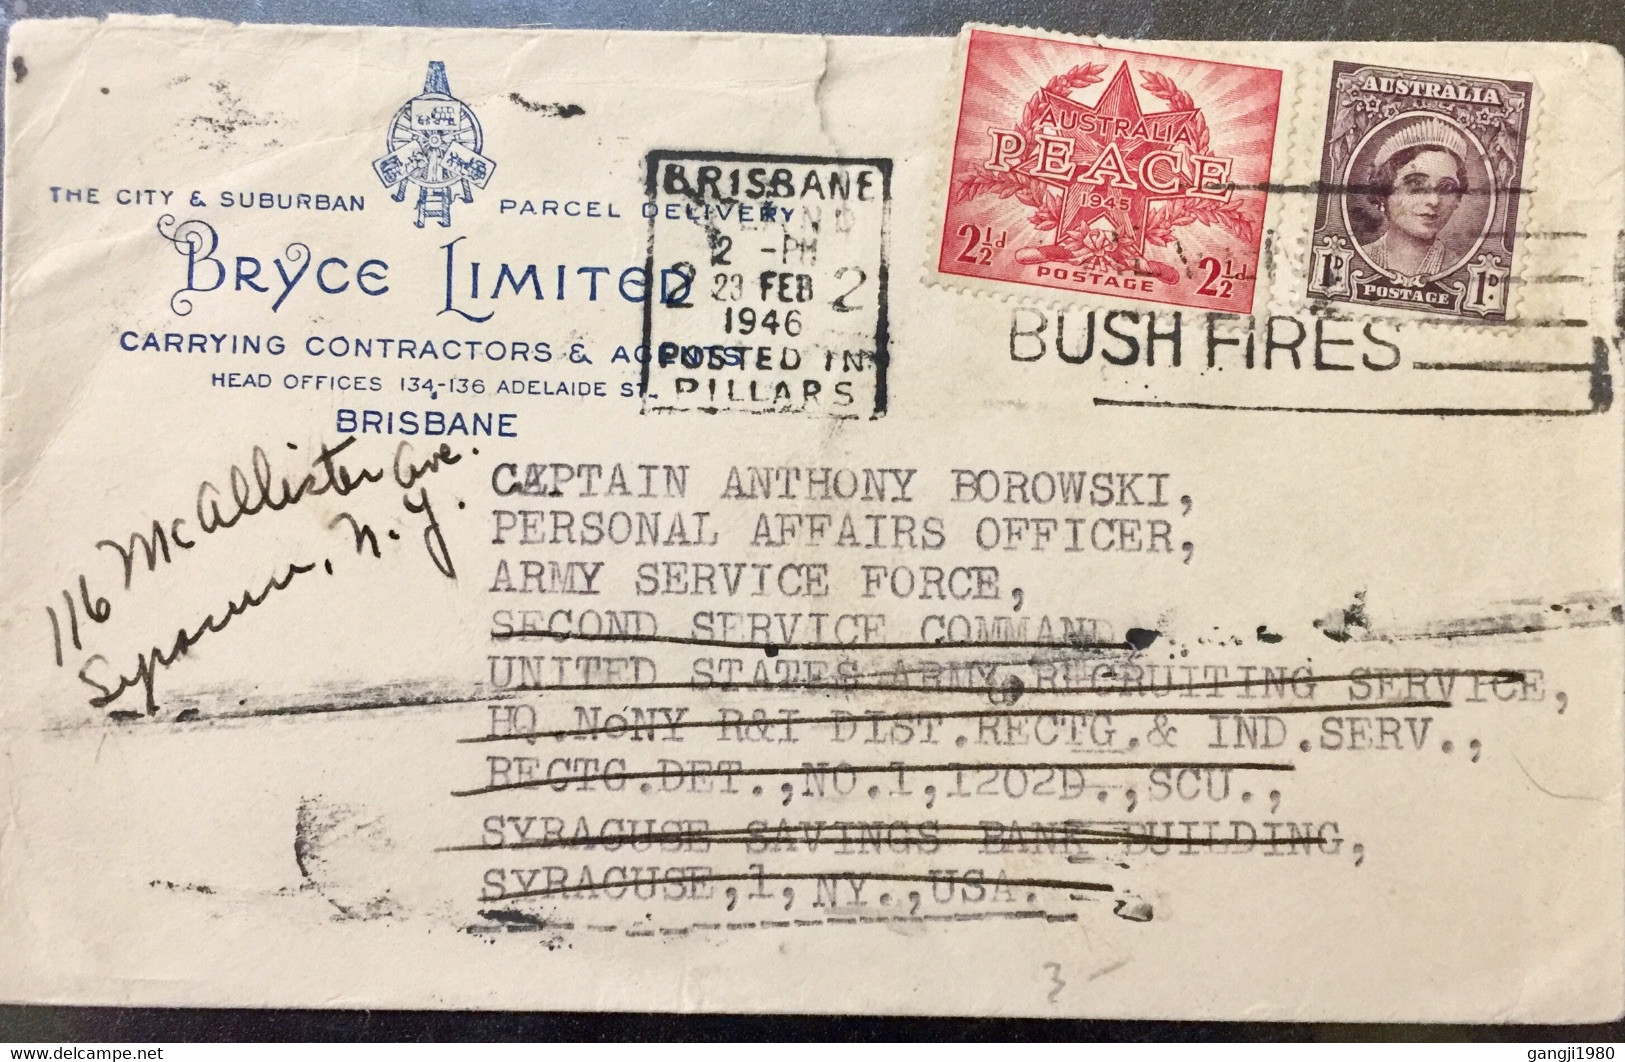 THE CITY & SUBURBAN PARCEL DELIVERY
BRYCE LIMITED
CARRYING CONTRACTORS & AGENTS
HEAD OFFICES 134-136 ADELAIDE ST.
BRISBANE
BRISBANE
2 -PM
2 23 FEB 2
1946
POSTED IN
PILLARS
AUSTRALIA
PEACE
1945
2½d 2½d
POSTAGE
AUSTRALIA
1D. 1D.
POSTAGE
BUSH FIRES
116 McAllister Ave.
Syracuse, N.Y.
CAPTAIN ANTHONY BOROWSKI,
PERSONAL AFFAIRS OFFICER,
ARMY SERVICE FORCE,
SECOND SERVICE COMMAND
UNITED STATES ARMY RECRUITING SERVICE,
HQ.NoNY R&I DIST.RECTG.& IND.SERV.,
RECTG.DET.,NO.1,1202D.,SCU.,
SYRACUSE SAVINGS BANK BUILDING,
SYRACUSE,1,NY.,USA.
3-
www.delcampe.net
gangji1980